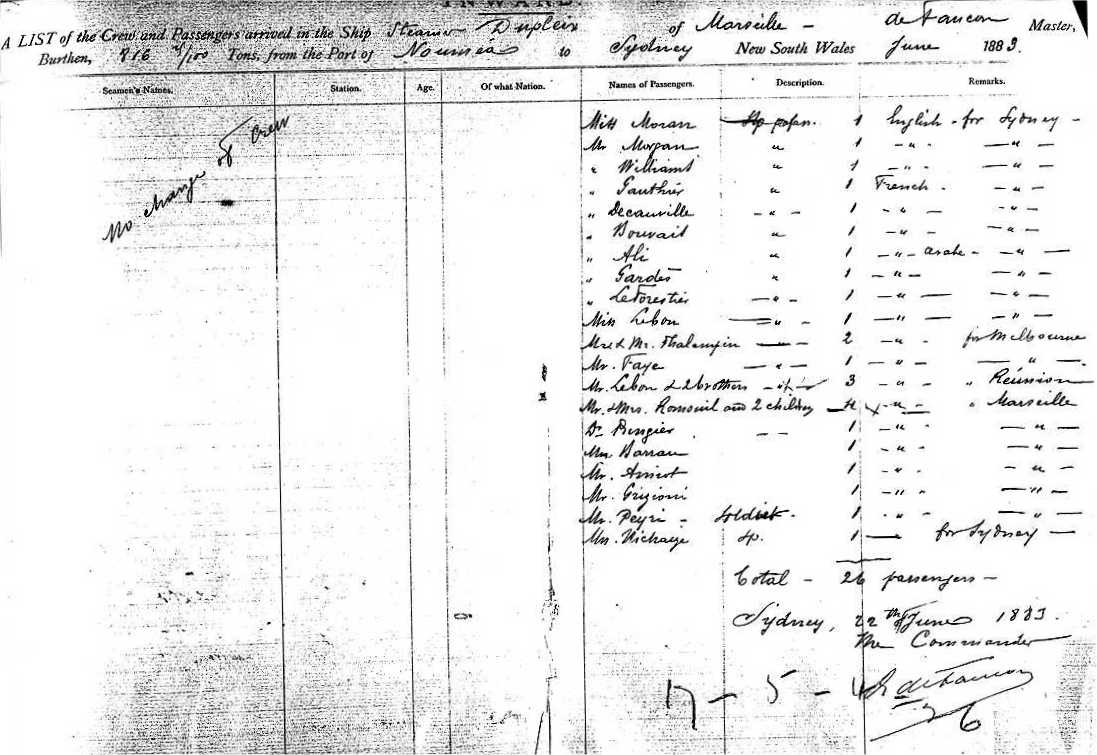 INWARD.
A LIST of the Crew and Passengers arrived in the Ship Steamer Dupleix of Marseille - de Faucon Master,
Burthen, 816 4/100 Tons, from the Port of Noumea to Sydney New South Wales June 1883.
Seamen's Names. Station. Age. Of what Nation. Names of Passengers. Description. Remarks.
No change of Crew
Miss Moran 1 English - for Sydney -
Mr Morgan " 1 - " - - " -
" Williams " 1 - " - - " -
" Gauthier " 1 French - - " -
" Decauville - " - 1 - " - - " -
" Bouvait " 1 - " - - " -
" Ali " 1 - " - arabe - - " -
" Gardes " 1 - " - - " -
" LeForestier - " - 1 - " - - " -
Miss Lebon - " - 1 - " - - " -
Mrs & Mr. Thalempin - " - 2 - " - for Melbourne
Mr. Faye - " - 1 - " - - " -
Mr. Lebon & 2 brothers - " - 3 - " - " Réunion
Mr. & Mrs. and 2 children - 4 - " - " Marseille
Dr - - 1 - " - - " -
Barrau 1 - " - - " -
Mr. 1 - " - - " -
Mr. Grizioni 1 - " - - " -
Mr. Peyri - soldier. 1 - " - - " -
1 - for Sydney -
Total - 26 passengers -
Sydney, 22th of June 1883.
The Commander
17 - 5 - 4
de Faucon
26